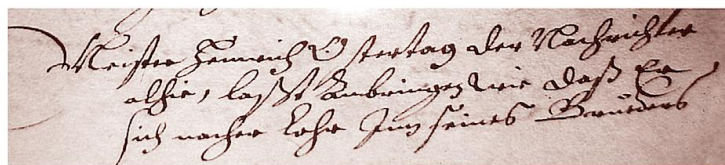 Meister Heinrich Ostertag der Nachrichter
alhie, lasst Anbringen wie daß Er
sich nacher Lohr Inn seines Brueders